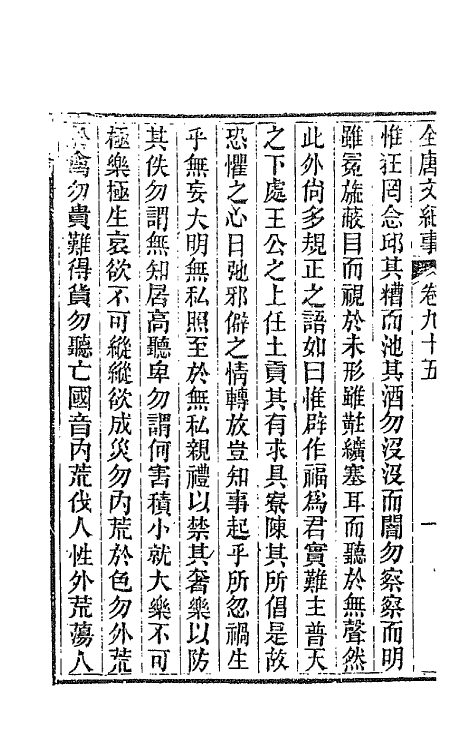 全唐文紀事 卷九十五 一
惟狂罔念邱其糟而池其酒勿沒沒而闇勿察察而明
雖冕旒蔽目而視於未形雖黈纊塞耳而聽於無聲然
此外尙多規正之語如曰惟辟作福爲君實難主普天
之下處王公之上任土貢其有求具寮陳其所倡是故
恐懼之心日弛邪僻之情轉放豈知事起乎所忽禍生
乎無妄大明無私照至於無私親禮以禁其奢樂以防
其佚勿謂無知居高聽卑勿謂何害積小就大樂不可
極樂極生哀欲不可縱縱欲成災勿內荒於色勿外荒
於禽勿貴難得貨勿聽亡國音內荒伐人性外荒蕩人